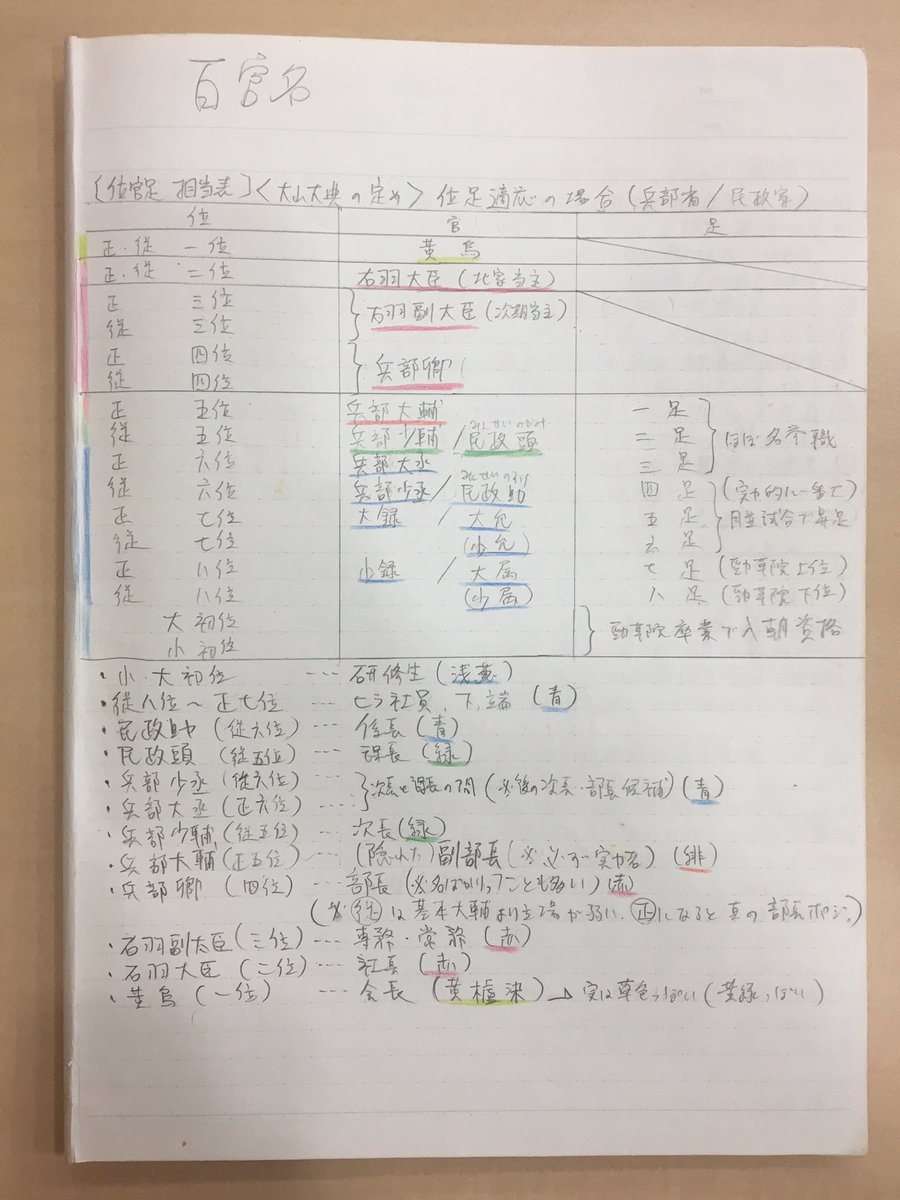 百官名
〔位官足 相当表〕<大山大典の定め> 位足適応の場合(兵部省/民政寮)
位 官 足
正・従 一位 黄烏
正・従 二位 右羽大臣(北家当主)
正 三位 右羽副大臣(次期当主)
従 三位
正 四位 兵部卿
従 四位
正 五位 兵部大輔 一足 ほぼ名誉職
従 五位 兵部少輔/民政頭 みんせいのかみ 二足
正 六位 兵部大丞 三足
従 六位 兵部少丞/民政助 みんせいのすけ 四足 (実力的に一番上)
正 七位 大録/大允 五足 月並試合で昇足
従 七位 (少允) 六足
正 八位 少録/大属 七足 (勁草院上位)
従 八位 (少属) 八足 (勁草院下位)
大初位 勁草院卒業で入朝資格
小初位
・小・大初位 --- 研修生(浅黄)
・従八位～正七位 --- ヒラ社員、下っ端(青)
・民政助(従六位) --- 係長(青)
・民政頭(従五位) --- 課長(緑)
・兵部少丞(従六位) --- 次長と課長の間(※後の次長・部長候補)(青)
・兵部大丞(正六位) ---
・兵部少輔(従五位) --- 次長(緑)
・兵部大輔(正五位) --- (隠れた)副部長(※必ず実力者)(緋)
・兵部卿(四位) --- 部長(※名ばかりってことも多い)(赤)
(※従は基本大輔より立場が弱い、正になると真の部長ポジ。)
・右羽副大臣(三位) --- 専務・常務(赤)
・右羽大臣(二位) --- 社長(赤)
・黄烏(一位) --- 会長(黄櫨染)→実は草色っぽい(黄緑っぽい)